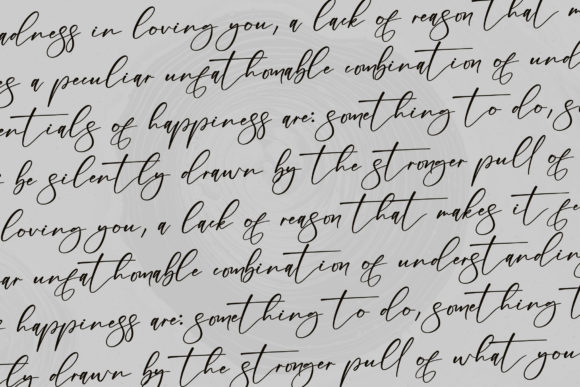 adness in loving you, a lack of reason that m
es a peculiar unfathomable combination of und
entials of happiness are: something to do, s
be silently drawn by the stronger pull of
loving you, a lack of reason that makes it fe
ar unfathomable combination of understanding
happiness are: something to do, something t
tly drawn by the stronger pull of what you